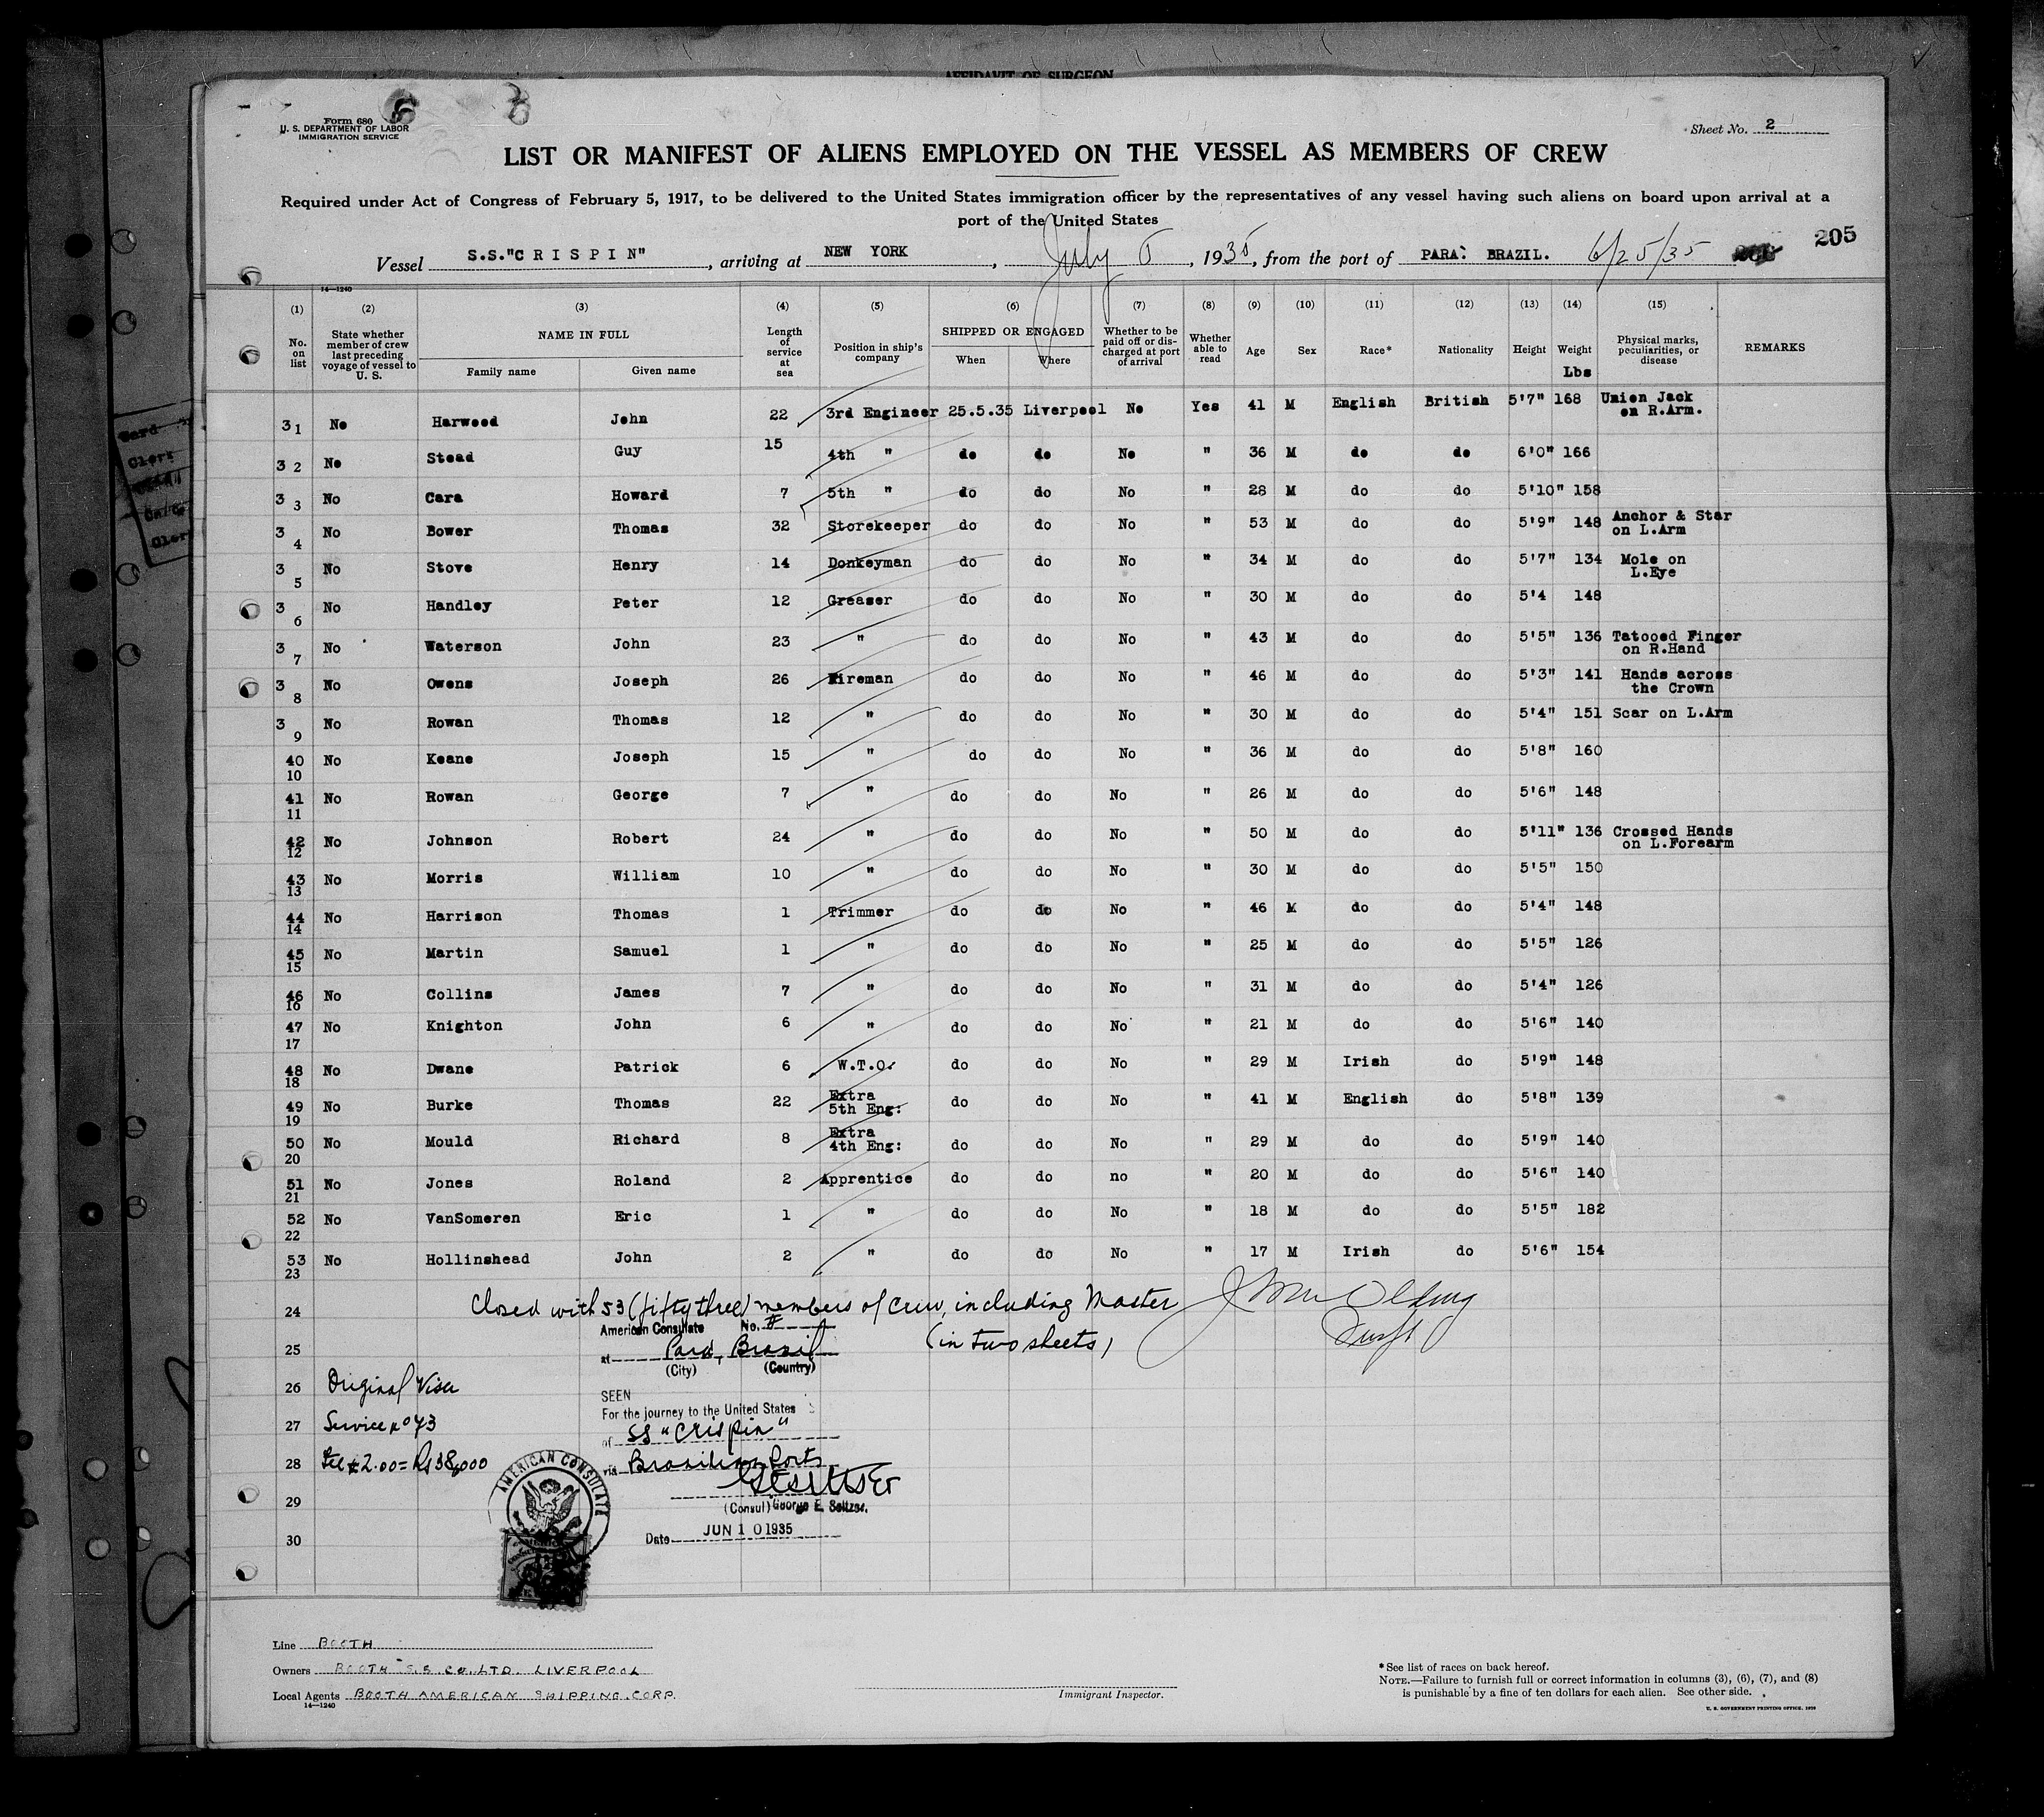 AFFIDAVIT OF SURGEON
Form 680
U. S. DEPARTMENT OF LABOR
IMMIGRATION SERVICE
Sheet No. 2
LIST OR MANIFEST OF ALIENS EMPLOYED ON THE VESSEL AS MEMBERS OF CREW
Required under Act of Congress of February 5, 1917, to be delivered to the United States immigration officer by the representatives of any vessel having such aliens on board upon arrival at a
port of the United States
205
Vessel S.S."CRISPIN", arriving at NEW YORK, July 5, 1935, from the port of PARA: BRAZIL. 6/25/35
14-1240
(1) (2) (3) (4) (5) (6) (7) (8) (9) (10) (11) (12) (13) (14) (15)
No. on list State whether member of crew last preceding voyage of vessel to U. S. NAME IN FULL Family name Given name Length of service at sea Position in ship's company SHIPPED OR ENGAGED When Where Whether to be paid off or discharged at port of arrival Whether able to read Age Sex Race* Nationality Height Weight Lbs Physical marks, peculiarities, or disease REMARKS
31 No Harwood John 22 3rd Engineer 25.5.35 Liverpool No Yes 41 M English British 5'7" 168 Union Jack on R.Arm.
32 No Stead Guy 15 4th " do do No " 36 M do do 6'0" 166
33 No Cara Howard 7 5th " do do No " 28 M do do 5'10" 158
34 No Bower Thomas 32 Storekeeper do do No " 53 M do do 5'9" 148 Anchor & Star on L.Arm
35 No Stove Henry 14 Donkeyman do do No " 34 M do do 5'7" 134 Mole on L.Eye
36 No Handley Peter 12 Greaser do do No " 30 M do do 5'4 148
37 No Waterson John 23 " do do No " 43 M do do 5'5" 136 Tatooed Finger on R.Hand
38 No Owens Joseph 26 Fireman do do No " 46 M do do 5'3" 141 Hands across the Crown
39 No Rowan Thomas 12 " do do No " 30 M do do 5'4" 151 Scar on L.Arm
40 10 No Keane Joseph 15 " do do No " 36 M do do 5'8" 160
41 11 No Rowan George 7 " do do No " 26 M do do 5'6" 148
42 12 No Johnson Robert 24 " do do No " 50 M do do 5'11" 136 Crossed Hands on L.Forearm
43 13 No Morris William 10 " do do No " 30 M do do 5'5" 150
44 14 No Harrison Thomas 1 Trimmer do do No " 46 M do do 5'4" 148
45 15 No Martin Samuel 1 " do do No " 25 M do do 5'5" 126
46 16 No Collins James 7 " do do No " 31 M do do 5'4" 126
47 17 No Knighton John 6 " do do No " 21 M do do 5'6" 140
48 18 No Dwane Patrick 6 W.T.O. do do No " 29 M Irish do 5'9" 148
49 19 No Burke Thomas 22 Extra 5th Eng: do do No " 41 M English do 5'8" 139
50 20 No Mould Richard 8 Extra 4th Eng: do do No " 29 M do do 5'9" 140
51 21 No Jones Roland 2 Apprentice do do no " 20 M do do 5'6" 140
52 22 No VanSomeren Eric 1 " do do No " 18 M do do 5'5" 182
53 23 No Hollinshead John 2 " do do No " 17 M Irish do 5'6" 154
24 Closed with 53 (fifty three) members of crew, including Master
American Consulate No. #
25 at Para, Brazil (in two sheets)
(City) (Country)
26 Original Visa
SEEN
For the journey to the United States
27 Service no 73
of SS "Crispin"
28 Fee $2.00 = Rs 38,000
via Brazilian Ports
29 (Consul) George E. Seltzer.
30 Date JUN 10 1935
AMERICAN CONSULATE
Line BOOTH
Owners BOOTH S.S. CO. LTD. LIVERPOOL
Local Agents BOOTH AMERICAN SHIPPING. CORP.
14-1240
Immigrant Inspector.
*See list of races on back hereof.
NOTE.—Failure to furnish full or correct information in columns (3), (6), (7), and (8)
is punishable by a fine of ten dollars for each alien. See other side.
U. S. GOVERNMENT PRINTING OFFICE